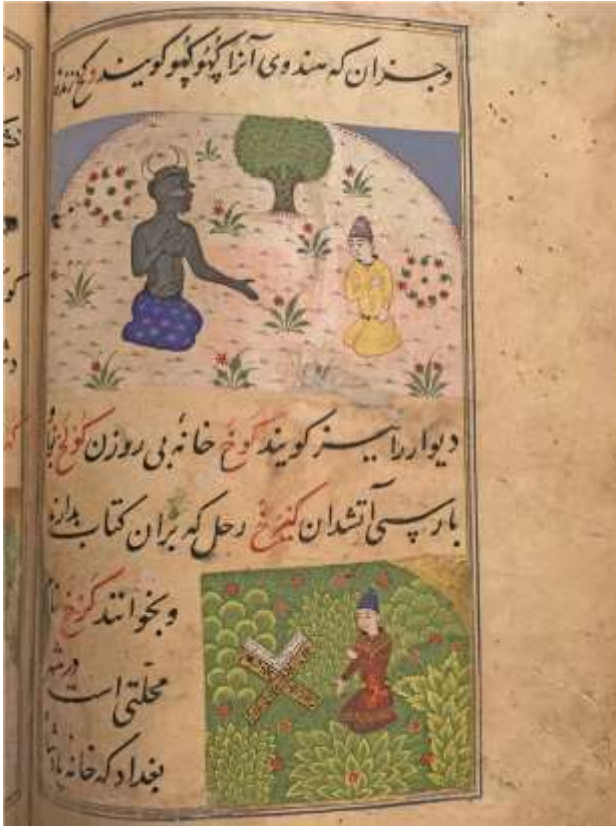 وجزان که هندوی آنرا کهُو کهُو گویند کخ
دیوار را نیز گویند کوخ خانهٔ بی روزن کولخ
بارسی آتشدان کیرخ رحل که بران کتاب بدارند
وبخوانند کرخ
محلّتی است در
بغداد که خانه